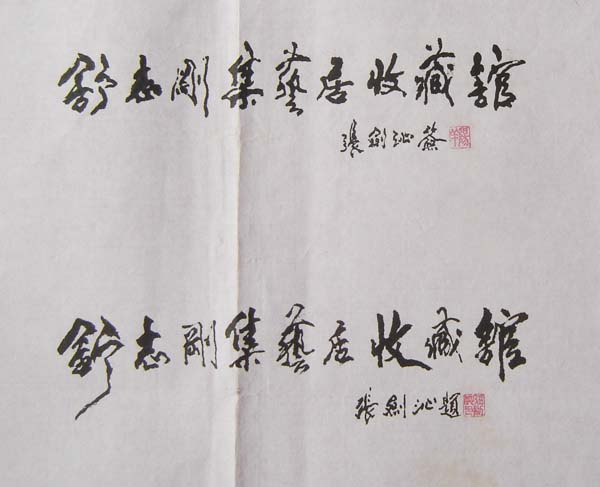 舒志剛集藝居收藏館
張劍沁
舒志剛集藝居收藏館
張劍沁題